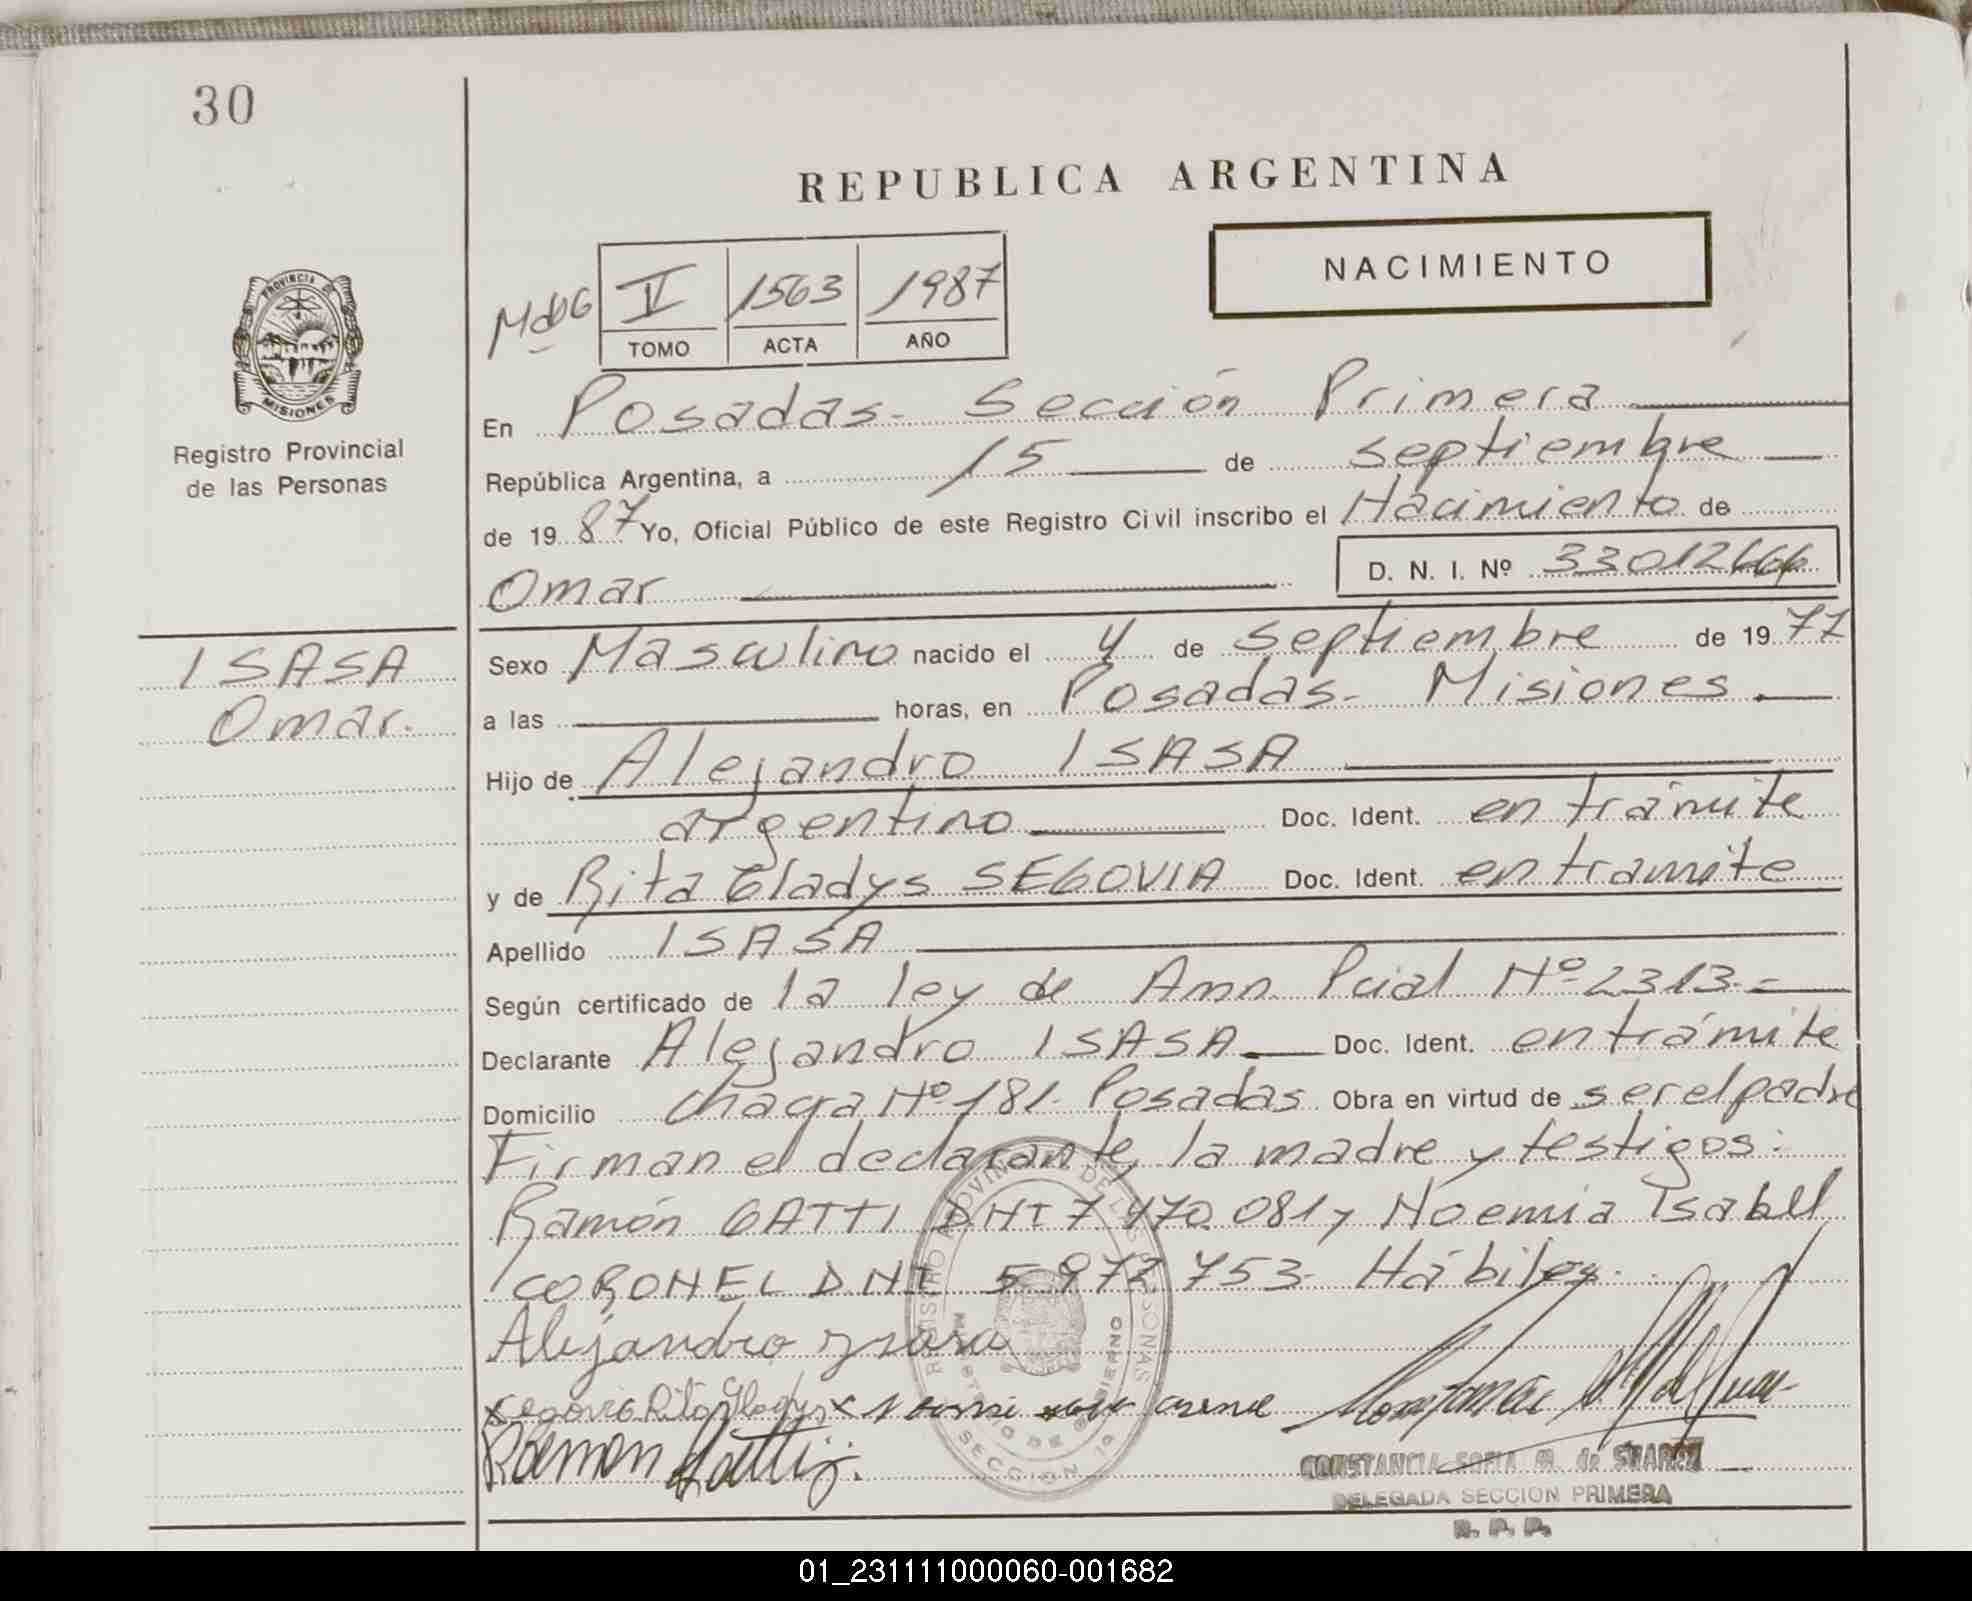 30
REPUBLICA ARGENTINA
NACIMIENTO
V 1563 1987
TOMO ACTA AÑO
PROVINCIA DE
MISIONES
Registro Provincial
de las Personas
En Posadas - Sección Primera
República Argentina, a 15 de septiembre
de 1987 Yo, Oficial Público de este Registro Civil inscribo el Nacimiento de
Omar D. N. I. Nº 33012666
ISASA
Omar.
Sexo Masculino nacido el 4 de septiembre de 1977
a las horas, en Posadas - Misiones
Hijo de Alejandro ISASA
argentino Doc. Ident. en trámite
y de Rita Gladys SEGOVIA Doc. Ident. en tramite
Apellido ISASA
Según certificado de la ley de Amn. Pcial Nº 2313.=
Declarante Alejandro ISASA Doc. Ident. en trámite
Domicilio chacra Nº 181 - Posadas Obra en virtud de ser el padre
Firman el declarante, la madre y testigos:
Ramón GATTI DNI 7.470.081 y Noemia Isabel
CORONEL DNI 5.972.753. Hábiles.
Alejandro Ysasa
x Segovia Rita Gladys x
Ramon Gatti
REGISTRO PROVINCIAL DE LAS PERSONAS
MINISTERIO DE GOBIERNO
SECCION 1a
CONSTANCIA SOFIA M. de SUAREZ
DELEGADA SECCION PRIMERA
R. P. P.
01_231111000060-001682